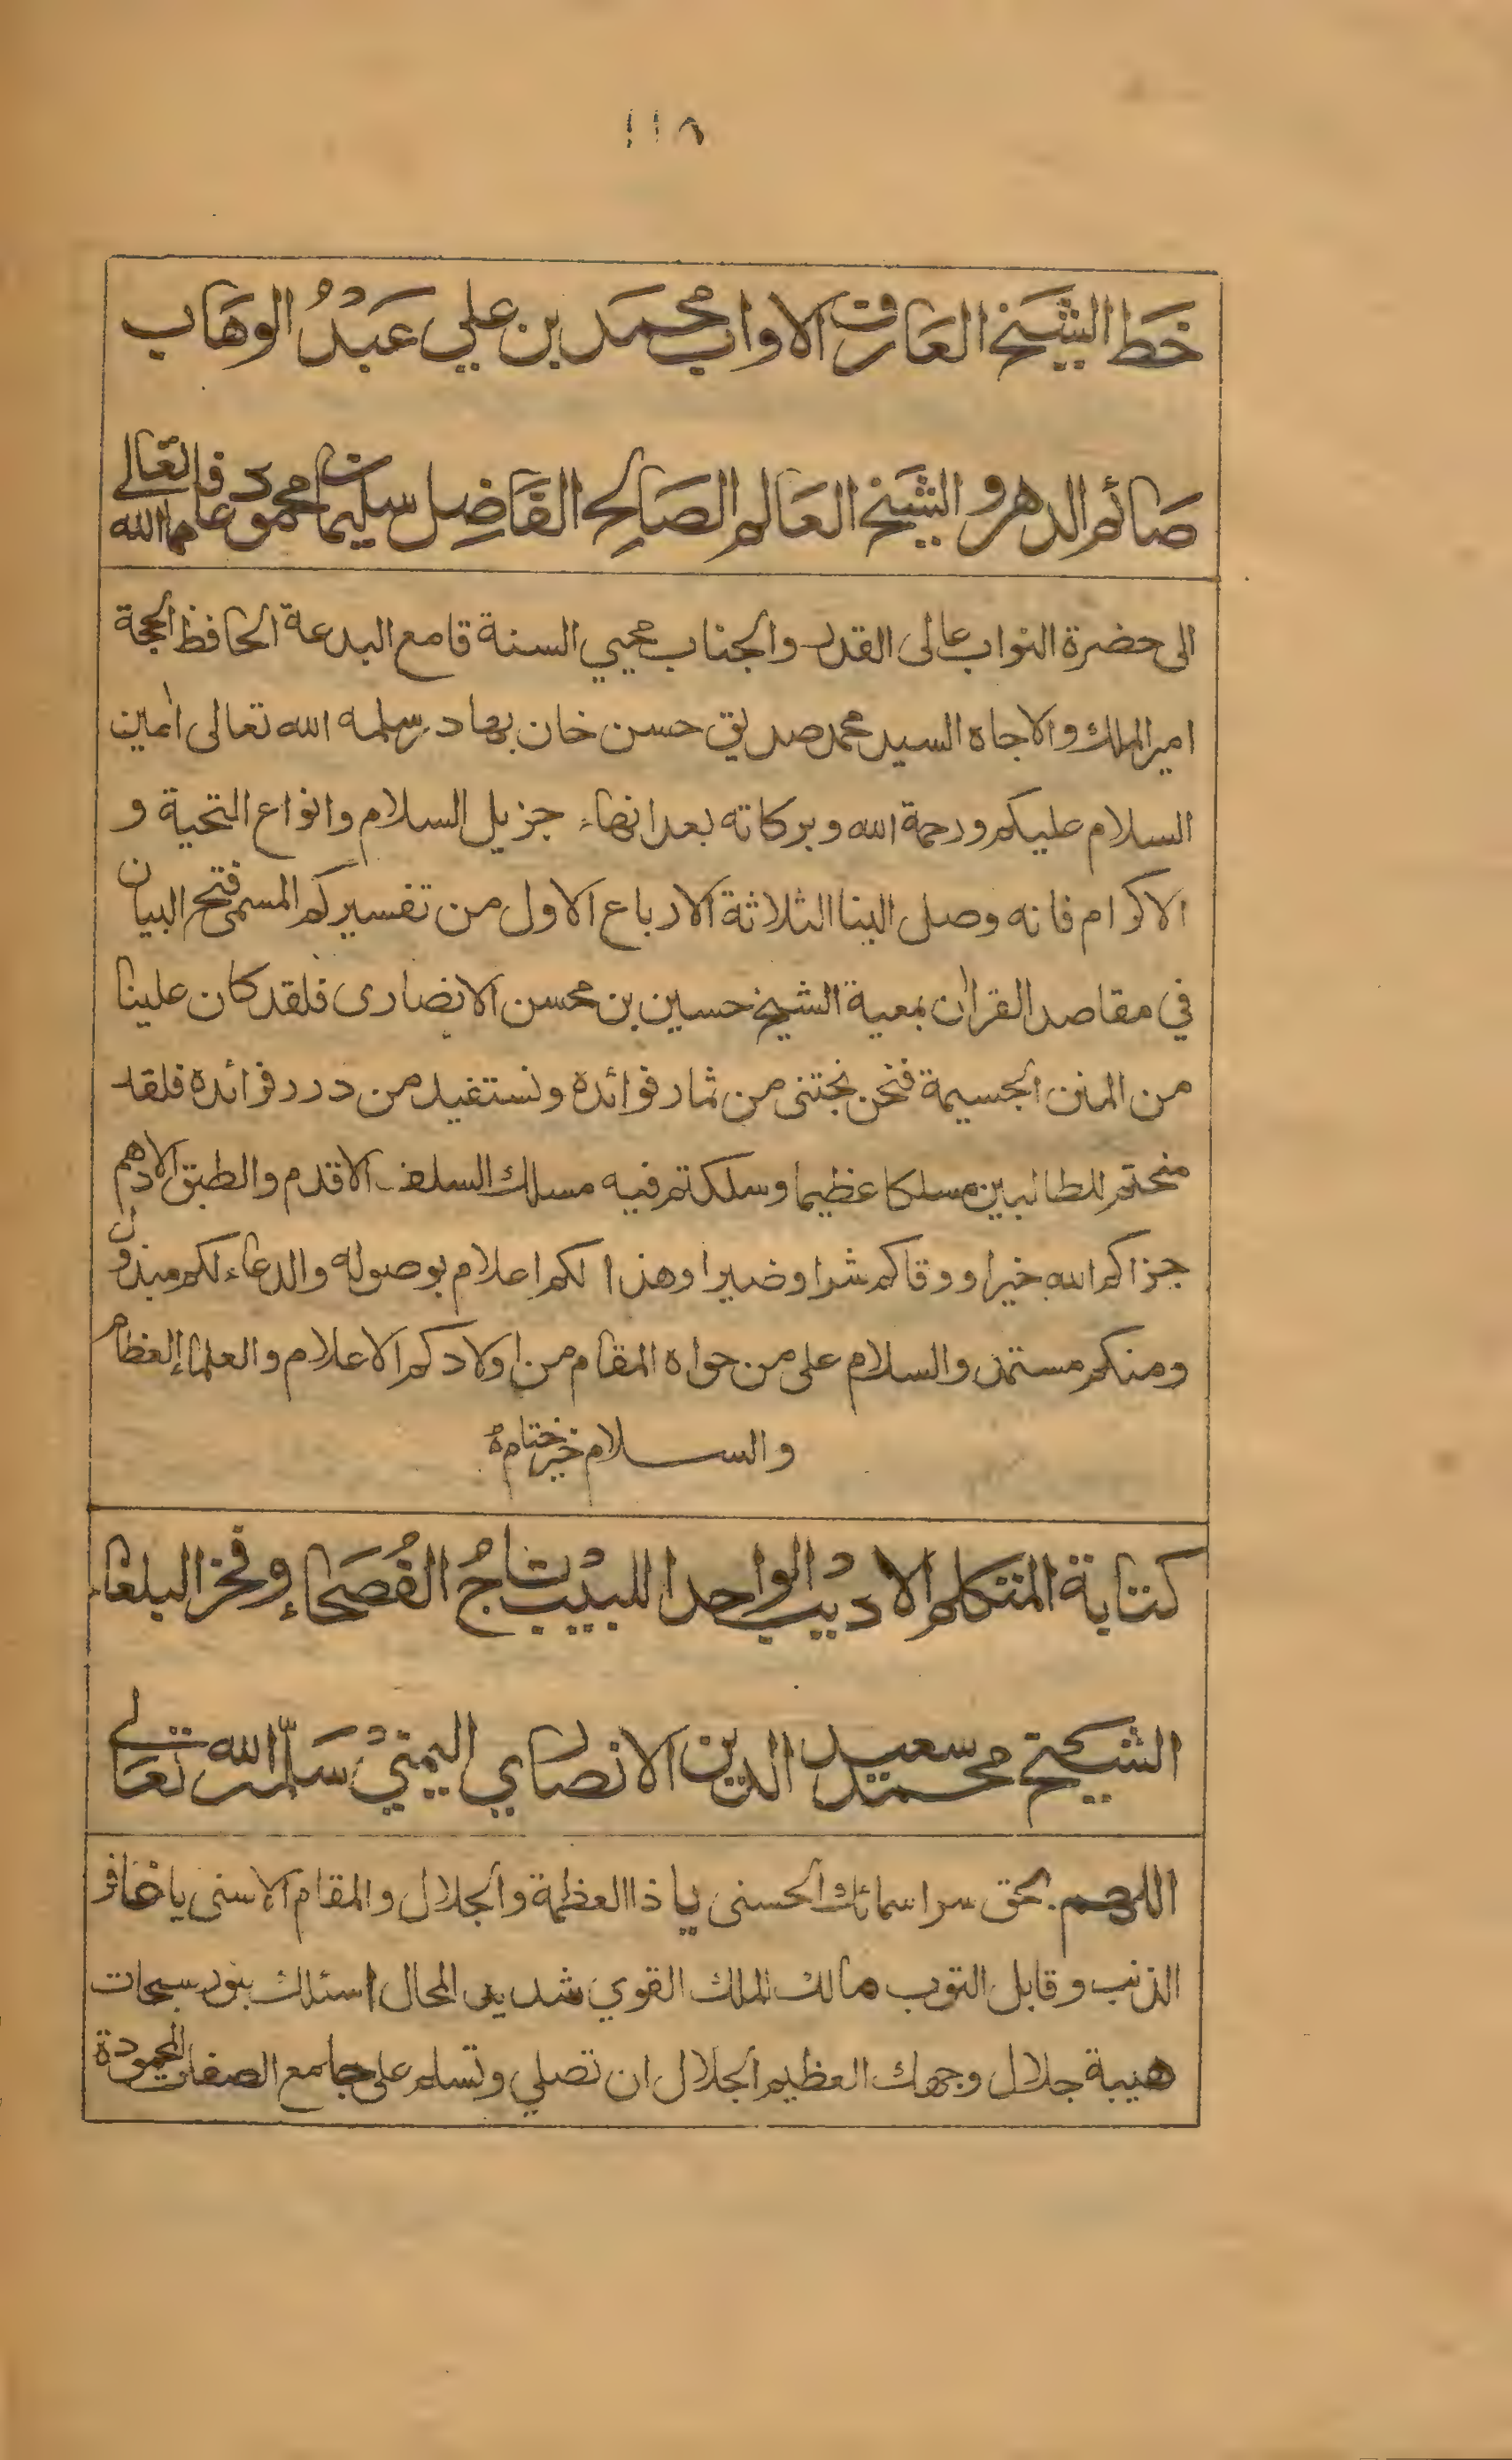 ١١٨
خَط الشَّيخ العَارف الاواب محمَد بن علي عَبْدُ الوهَاب
صَائم الدهر و الشَّيخ العَالم الصَالح الفَاضِل سليمان محمود عافاهما الله تعَالى
الى حضرة النواب عالى القدر والجناب محيي السنة قامع البدعة الحافظ الحجة
امير الملك والاجاه السيد محمد صديق حسن خان بهادر سلمه الله تعالى اٰمين
السلام عليكم ورحمة الله وبركاته بعد انهاء جزيل السلام وانواع التحية و
الاكرام فانه وصل الينا الثلاثة الارباع الاول من تفسيركم المسمى فتح البيان
في مقاصد القراٰن بمعية الشيخ حسين بن محسن الانصارى فلقد كان علينا
من المنن الجسيمة فنحن نجتنى من ثمار فوائده ونستفيد من درر فرائده فلقد
منحتم للطالبين مسلكا عظيما وسلكتم فيه مسلك السلف الاقدم والطبق الادهم
جزاكم الله خيرا ووقاكم شرا وضيرا وهذا لكم اعلام بوصوله والدعاء لكم مبذول
ومنكم مستمد والسلام على من حواه المقام من اولادكم الاعلام والعلماء العظام
والسلام خير ختام
كتابة المتكلم الاديب الواحد اللبيب تاجُ الفُصَحَاءِ وفخر البلغاء
الشيخ محمد سعيد الدين الانصاري اليمني سَلّمه الله تعَالى
اللهم بحق سر اسمائك الحسنى يا ذا العظمة والجلال والمقام الاسنى يا غافر
الذنب وقابل التوب مالك الملك القوي شديد المحال اسئلك بنور سبحات
هيبة جلال وجهك العظيم الجلال ان تصلي وتسلم على جامع الصفات المحمودة